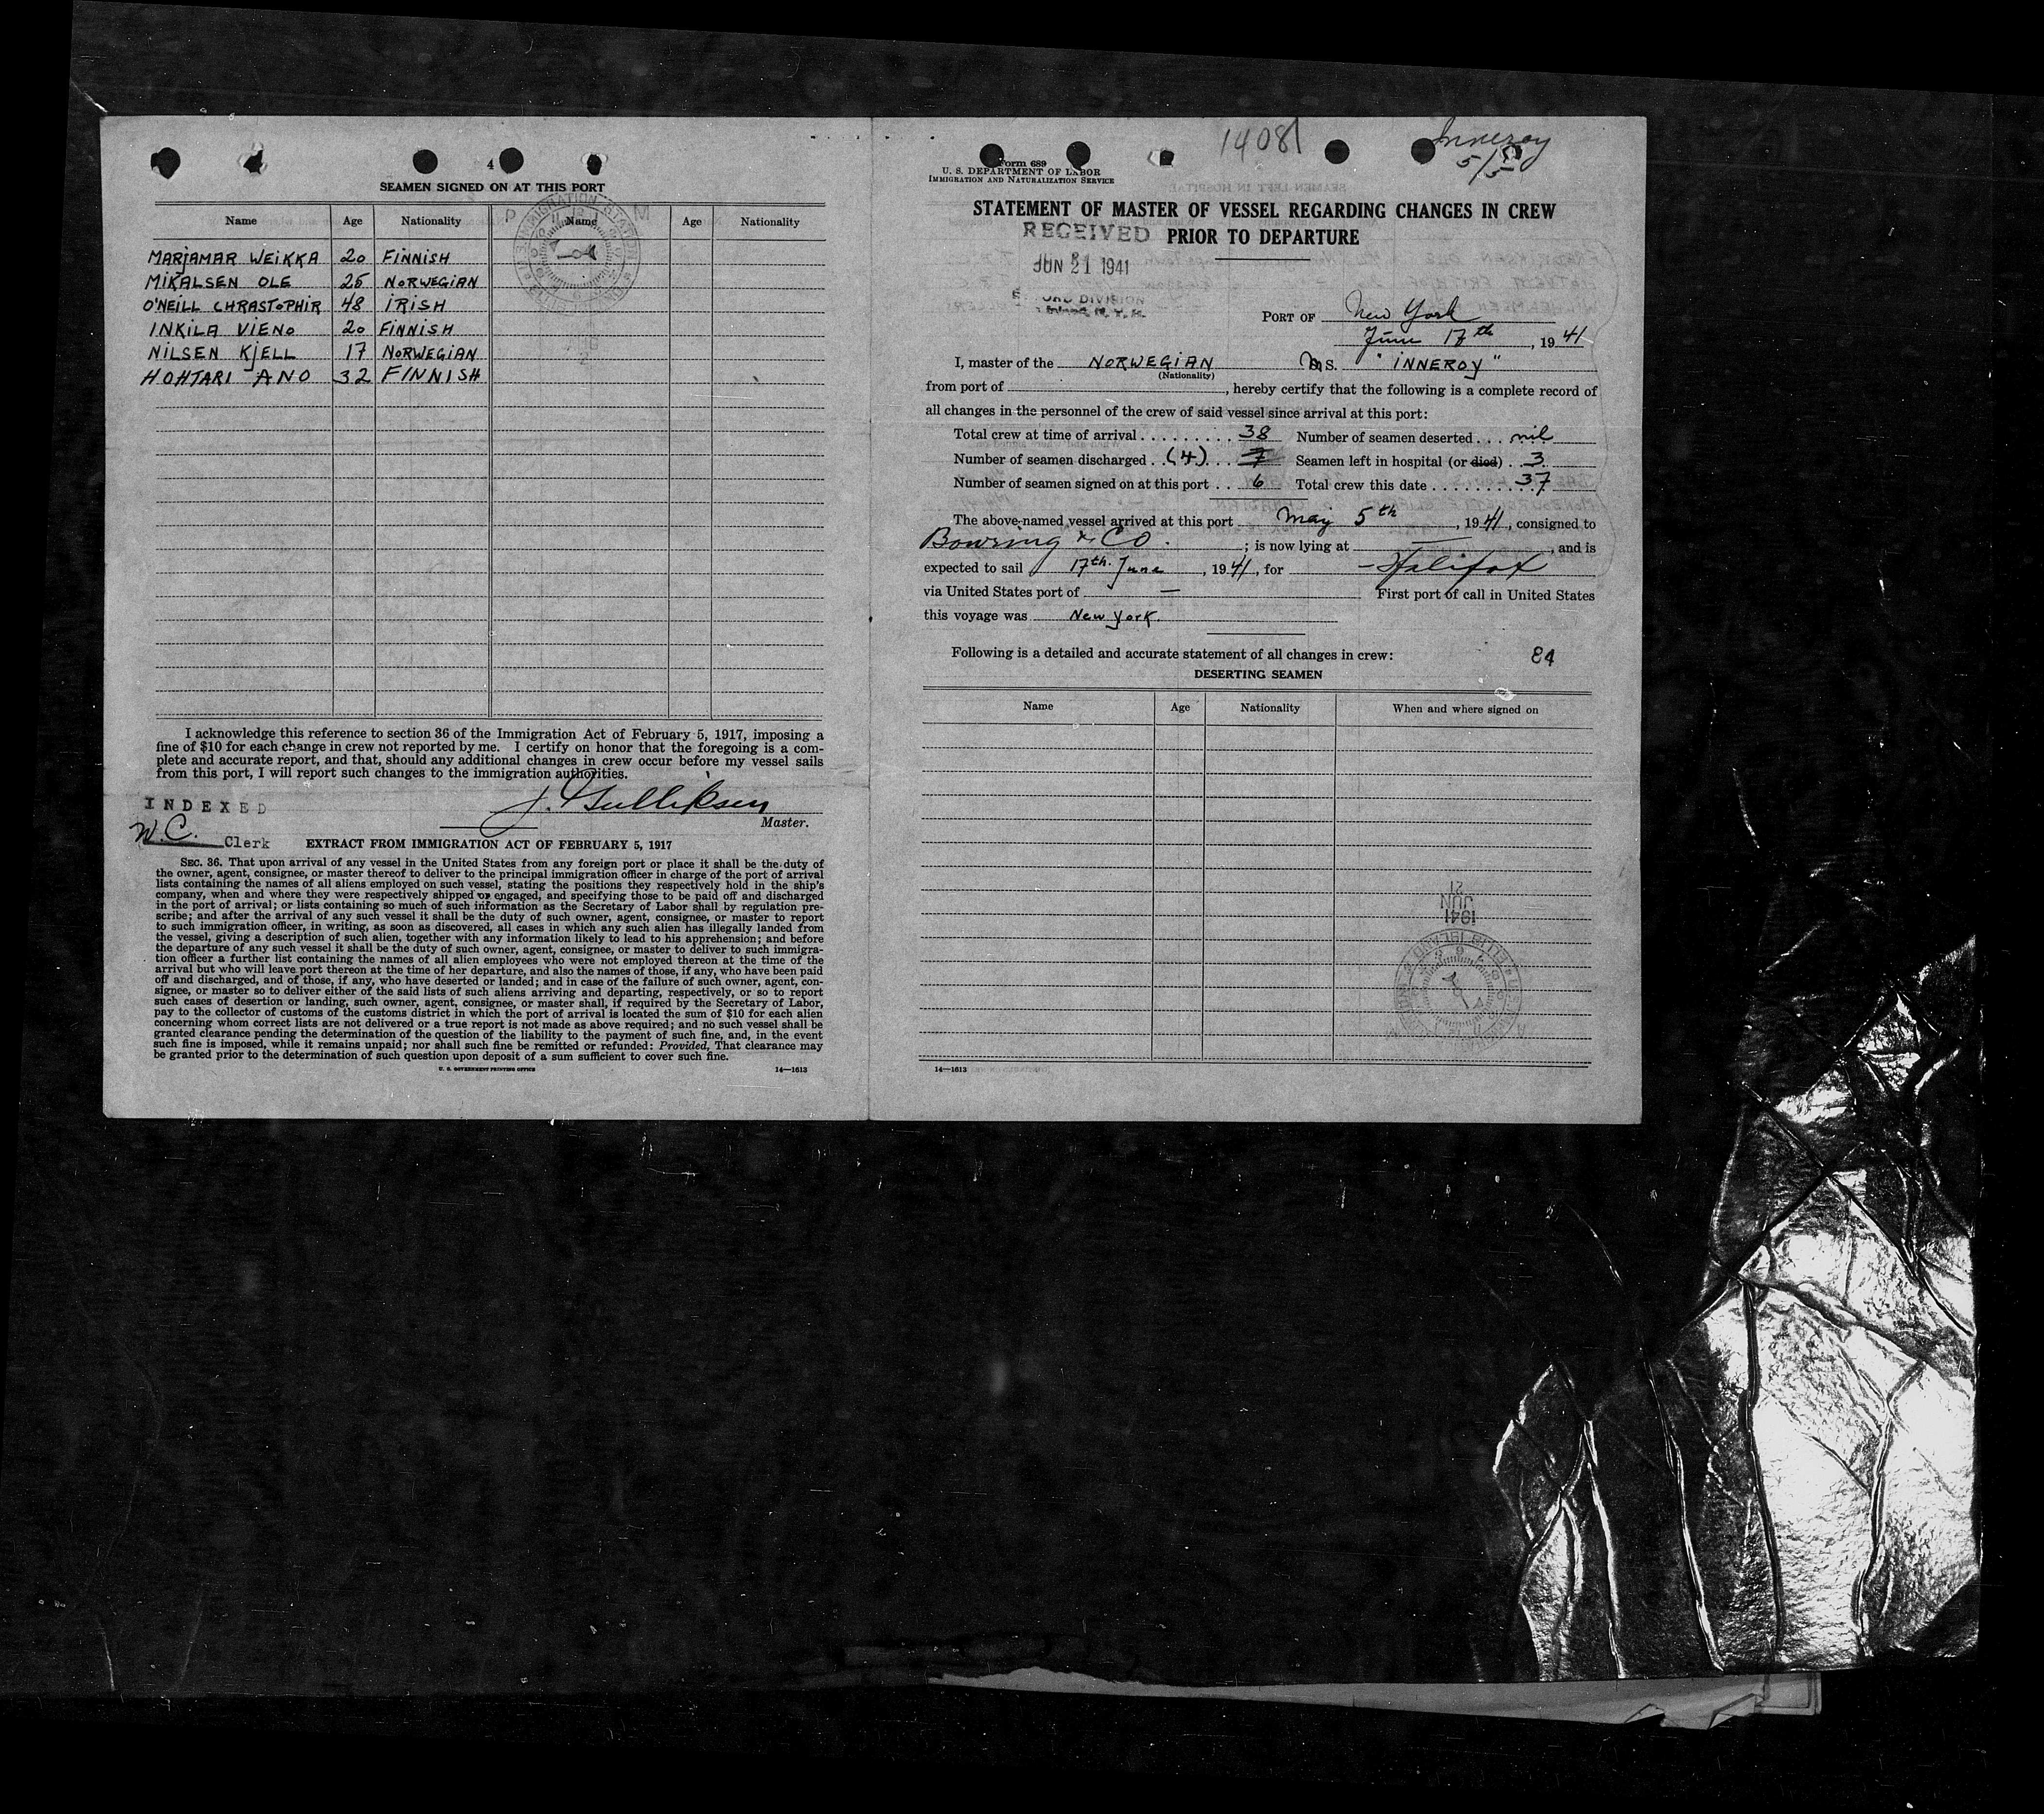 4
SEAMEN SIGNED ON AT THIS PORT
Name Age Nationality Name Age Nationality
MARJAMAR WEIKKA 20 FINNISH
MIKALSEN OLE 25 NORWEGIAN
O'NEILL CHRASTOPHIR 48 IRISH
INKILA VIENO 20 FINNISH
NILSEN KJELL 17 NORWEGIAN
HOHTARI ANO 32 FINNISH
I acknowledge this reference to section 36 of the Immigration Act of February 5, 1917, imposing a
fine of $10 for each change in crew not reported by me. I certify on honor that the foregoing is a com-
plete and accurate report, and that, should any additional changes in crew occur before my vessel sails
from this port, I will report such changes to the immigration authorities.
INDEXED
J. Gulliksen
Master.
W.C. Clerk
EXTRACT FROM IMMIGRATION ACT OF FEBRUARY 5, 1917
SEC. 36. That upon arrival of any vessel in the United States from any foreign port or place it shall be the duty of
the owner, agent, consignee, or master thereof to deliver to the principal immigration officer in charge of the port of arrival
lists containing the names of all aliens employed on such vessel, stating the positions they respectively hold in the ship's
company, when and where they were respectively shipped or engaged, and specifying those to be paid off and discharged
in the port of arrival; or lists containing so much of such information as the Secretary of Labor shall by regulation pre-
scribe; and after the arrival of any such vessel it shall be the duty of such owner, agent, consignee, or master to report
to such immigration officer, in writing, as soon as discovered, all cases in which any such alien has illegally landed from
the vessel, giving a description of such alien, together with any information likely to lead to his apprehension; and before
the departure of any such vessel it shall be the duty of such owner, agent, consignee, or master to deliver to such immigra-
tion officer a further list containing the names of all alien employees who were not employed thereon at the time of the
arrival but who will leave port thereon at the time of her departure, and also the names of those, if any, who have been paid
off and discharged, and of those, if any, who have deserted or landed; and in case of the failure of such owner, agent, con-
signee, or master so to deliver either of the said lists of such aliens arriving and departing, respectively, or so to report
such cases of desertion or landing, such owner, agent, consignee, or master shall, if required by the Secretary of Labor,
pay to the collector of customs of the customs district in which the port of arrival is located the sum of $10 for each alien
concerning whom correct lists are not delivered or a true report is not made as above required; and no such vessel shall be
granted clearance pending the determination of the question of the liability to the payment of such fine, and, in the event
such fine is imposed, while it remains unpaid; nor shall such fine be remitted or refunded: Provided, That clearance may
be granted prior to the determination of such question upon deposit of a sum sufficient to cover such fine.
U. S. GOVERNMENT PRINTING OFFICE 14—1613
14081
Inneroy
5/5
Form 689
U. S. DEPARTMENT OF LABOR
IMMIGRATION AND NATURALIZATION SERVICE
STATEMENT OF MASTER OF VESSEL REGARDING CHANGES IN CREW
RECEIVED PRIOR TO DEPARTURE
JUN 21 1941
DIVISION
PORT OF New York
June 17th, 1941
I, master of the NORWEGIAN MS. "INNEROY"
(Nationality)
from port of , hereby certify that the following is a complete record of
all changes in the personnel of the crew of said vessel since arrival at this port:
Total crew at time of arrival 38 Number of seamen deserted nil
Number of seamen discharged (4) 7 Seamen left in hospital (or died) 3
Number of seamen signed on at this port 6 Total crew this date 37
The above-named vessel arrived at this port May 5th, 1941, consigned to
Bowring & Co. ; is now lying at — , and is
expected to sail 17th June, 1941, for - Halifax
via United States port of — First port of call in United States
this voyage was New York.
Following is a detailed and accurate statement of all changes in crew: 84
DESERTING SEAMEN
Name Age Nationality When and where signed on
1941
JUN
21
14—1613